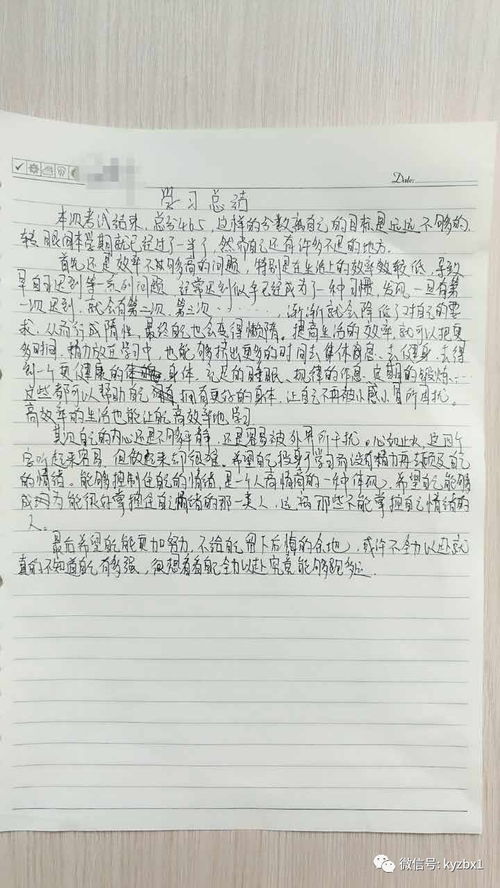 Date:
学习总结
本次考试结束，总分465，这样的分数离自己的目标是远远不够的，
转眼间本学期就已经过了一半了，然而自己还有许多不足的地方。
首先还是效率不够高的问题，特别是在生活上的效率较低，导致
早自习迟到等一系列问题，经常迟到似乎已经成为了一种习惯，发现一旦有第
一次迟到，就会有第二次，第三次……，渐渐就会降低了对自己的要
求，从而形成惰性，最终自己也会变得懒惰。提高生活的效率，就可以把更
多时间，精力放在学习中，也能够挤出更多的时间去集体休息、去健身，去得
到一个更健康的身体，充足的睡眠、规律的作息，定期的锻炼……
这些都可以帮助自己拥有更好的身体，让自己不再被小感小冒所困扰。
高效率的生活也能让自己高效率地学习
其次自己的内心还是不够平静，还是容易被外界所干扰。心如止水，这四个
字听起来容易，但做起来却很难。希望自己投身于学习而没有精力再顾及自己
的情绪。能够控制住自己的情绪，是一个人高情商的一种体现，希望自己能够
成为能很好掌控住自己情绪的那一类人，远离那些不能掌控自己情绪的
人。
最后希望自己能更加努力，不给自己留下后悔的余地，或许不全力以赴就
真的不知道自己有多强，很想看看自己全力以赴究竟能够跑多远
微信号: kyzbx1